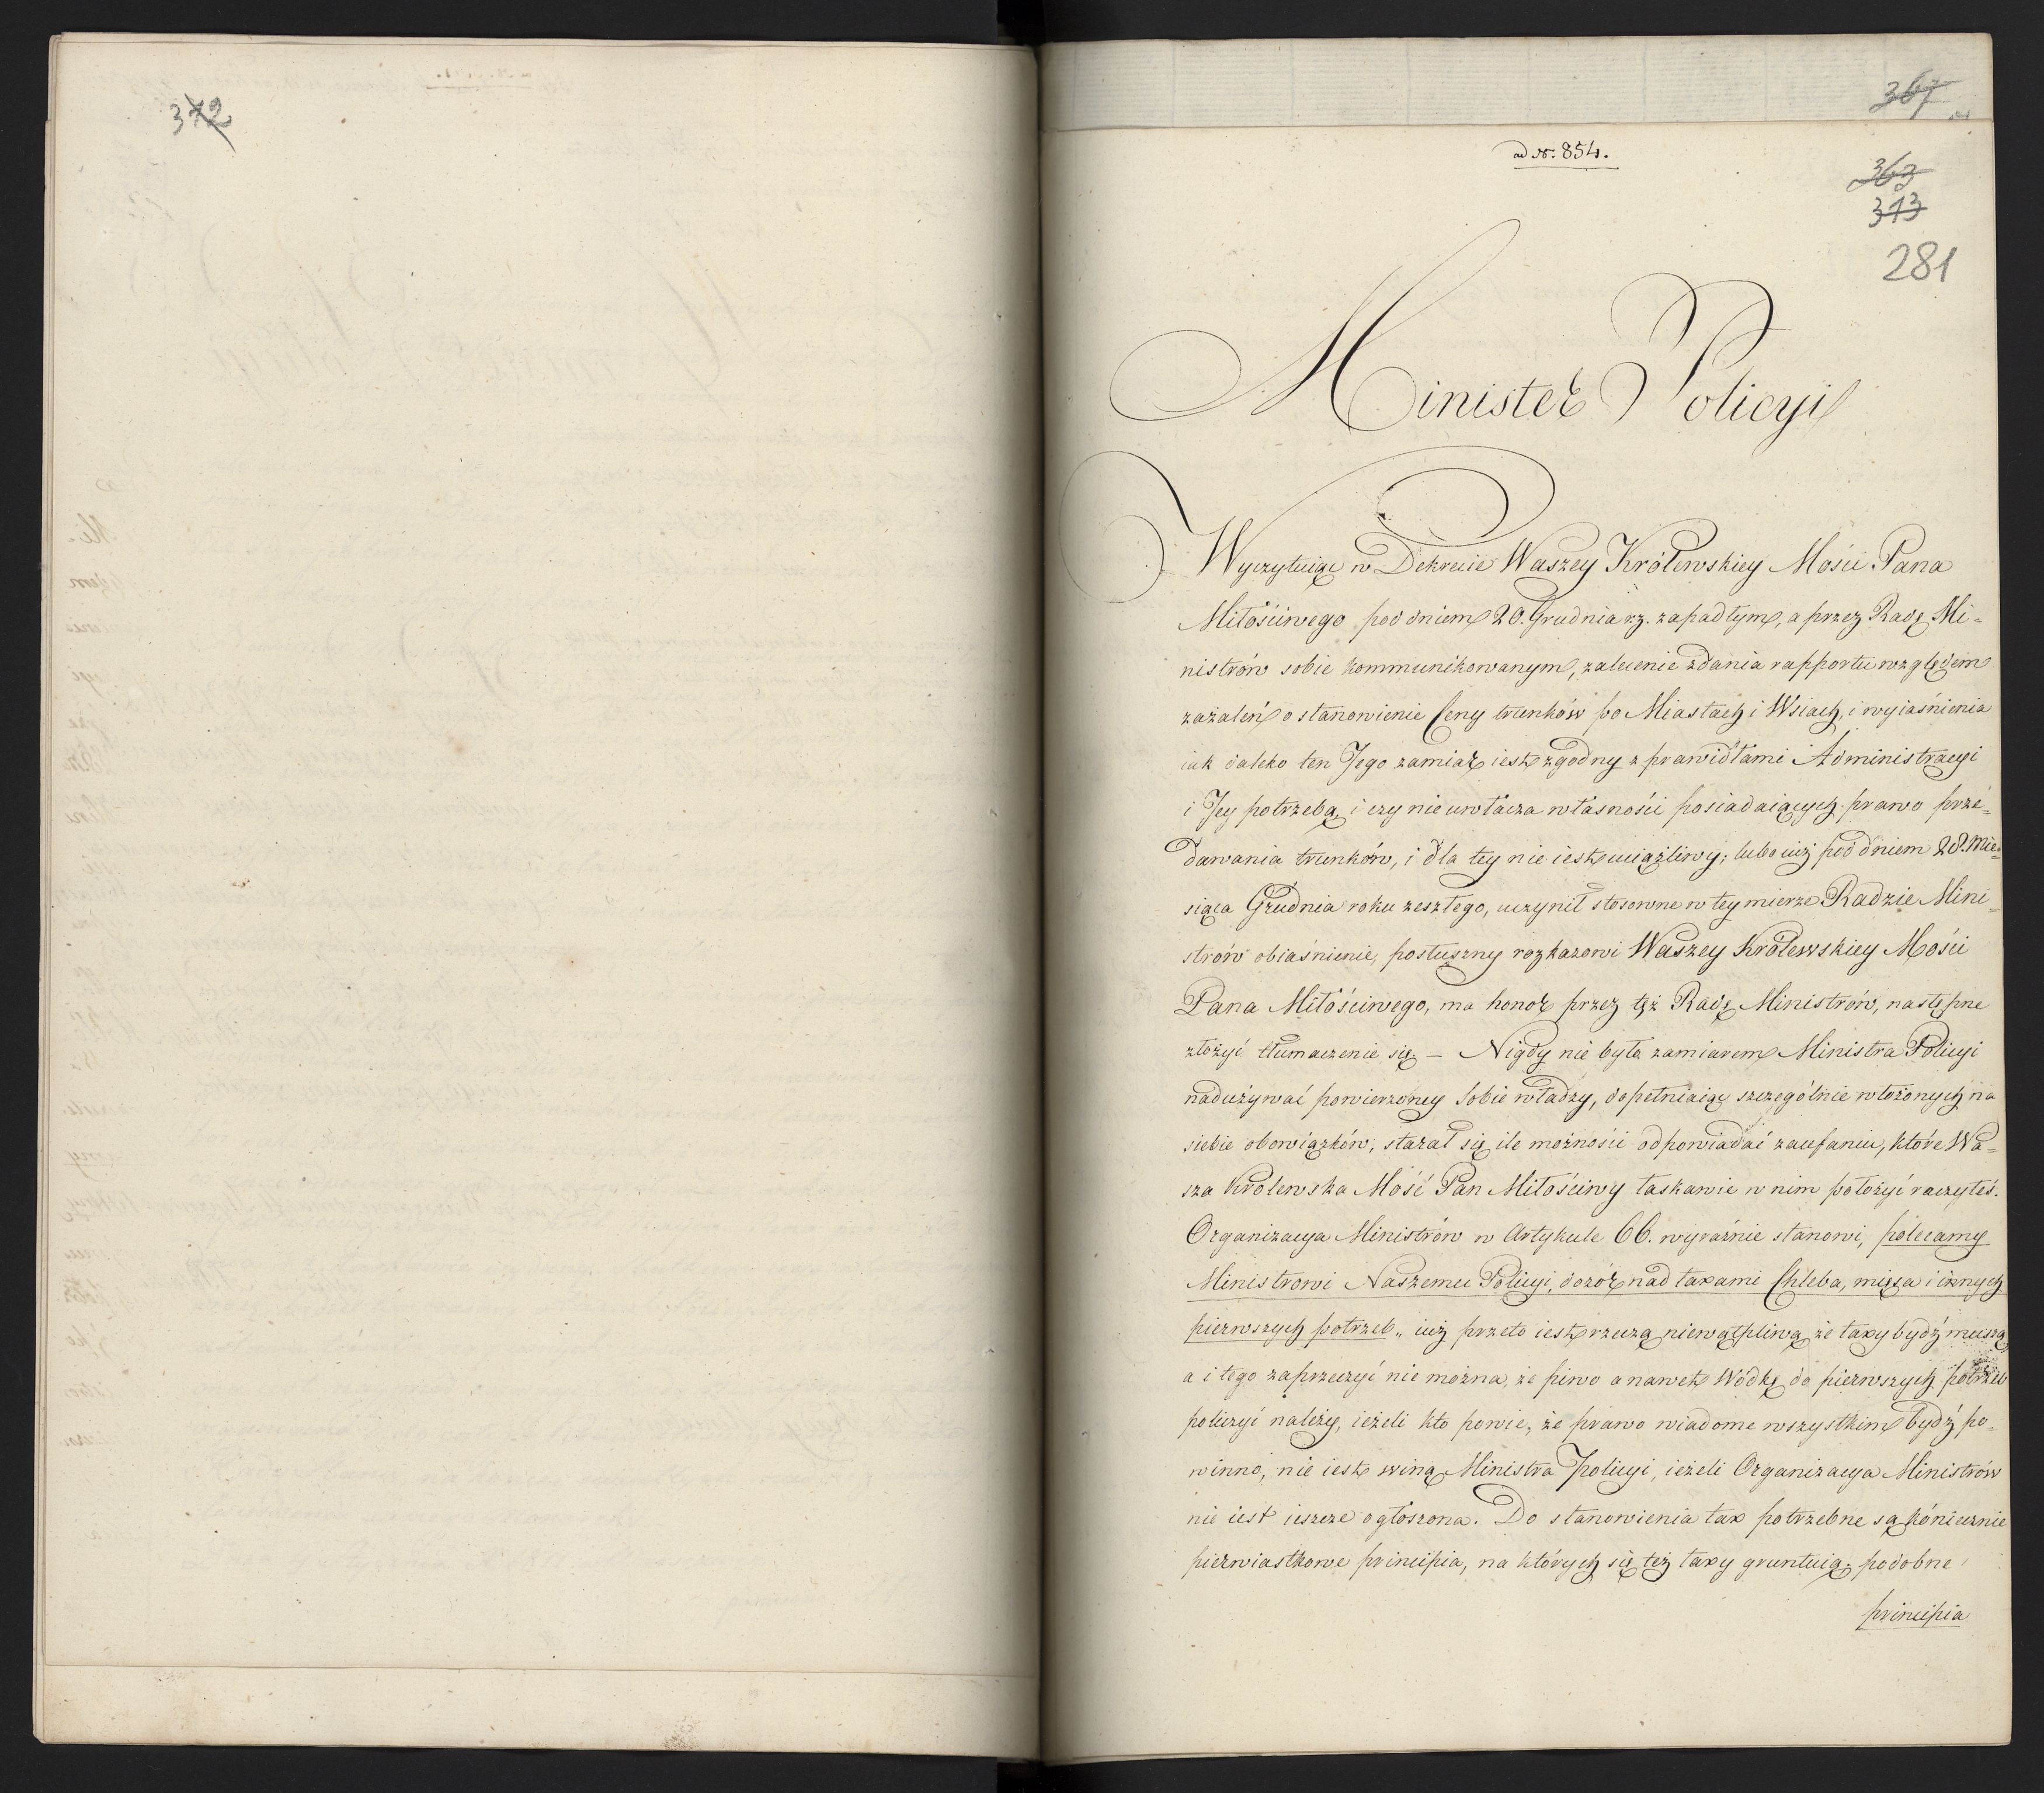 372
367
ad N. 854.
363
373
281
Minister Policyi
Wyczytuiąc w Dekrecie Waszey Królewskiey Mości Pana
Miłościwego pod dniem 20. Grudnia r.z. zapadłym, a przez Radę Mi-
nistrów sobie kommunikowanym, zalecenie zdania rapportu względem
zażaleń o stanowienie Ceny trunków po Miastach i Wsiach, i wyiaśnienia
iak daleko ten Jego zamiar iest zgodny z prawidłami Administracyi
i Jey potrzebą, i czy nie uwłacza własności posiadaiących prawo prze-
dawania trunków, i dla tey nie iest uciążliwy; lubo iuż pod dniem 28. Mie-
siąca Grudnia roku zeszłego, uczynił stosowne w tey mierze Radzie Mini-
strów obiaśnienie, posłuszny rozkazowi Waszey Królewskiey Mości
Pana Miłościwego, ma honor przez tęż Radę Ministrów, następne
złożyć tłumaczenie się – Nigdy nie było zamiarem Ministra Policyi
nadużywać powierzoney Sobie władzy, dopełniaiąc szczególnie włożonych na
siebie obowiązków, starał się ile możności odpowiadać zaufaniu, które Wa-
sza Królewska Mość Pan Miłościwy łaskawie w nim położyć raczyłeś.
Organizacya Ministrów w Artykule 66. wyraźnie stanowi, polecamy
Ministrowi Naszemu Policyi, dozór nad taxami Chleba, mięsa i innych
pierwszych potrzeb„ iuż przeto iest rzeczą niewątpliwą że taxy bydź muszą,
a i tego zaprzeczyć nie można, że piwo a nawet Wódkę do pierwszych potrzeb
policzyć należy, ieżeli kto powie, że prawo wiadome wszystkim bydź po-
winno, nie iest winą Ministra Policyi, ieżeli Organizacya Ministrów
nie iest ieszcze ogłoszona. Do stanowienia tax potrzebne są koniecznie
pierwiastkowe principia, na których się też taxy gruntuią, podobne
principia